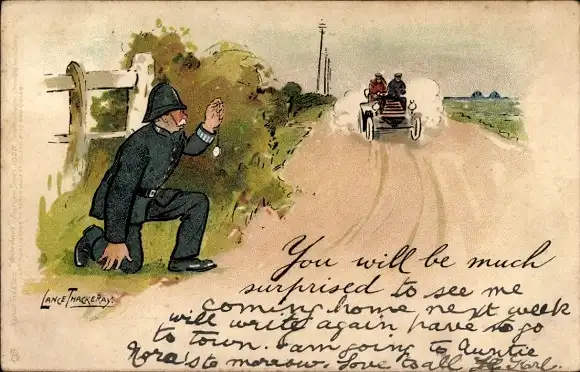 You will be much
surprised to see me
coming home next week
will write again have to go
to town. I am going to Auntie
Nora's to morrow. Love to all
LANCE THACKERAY.